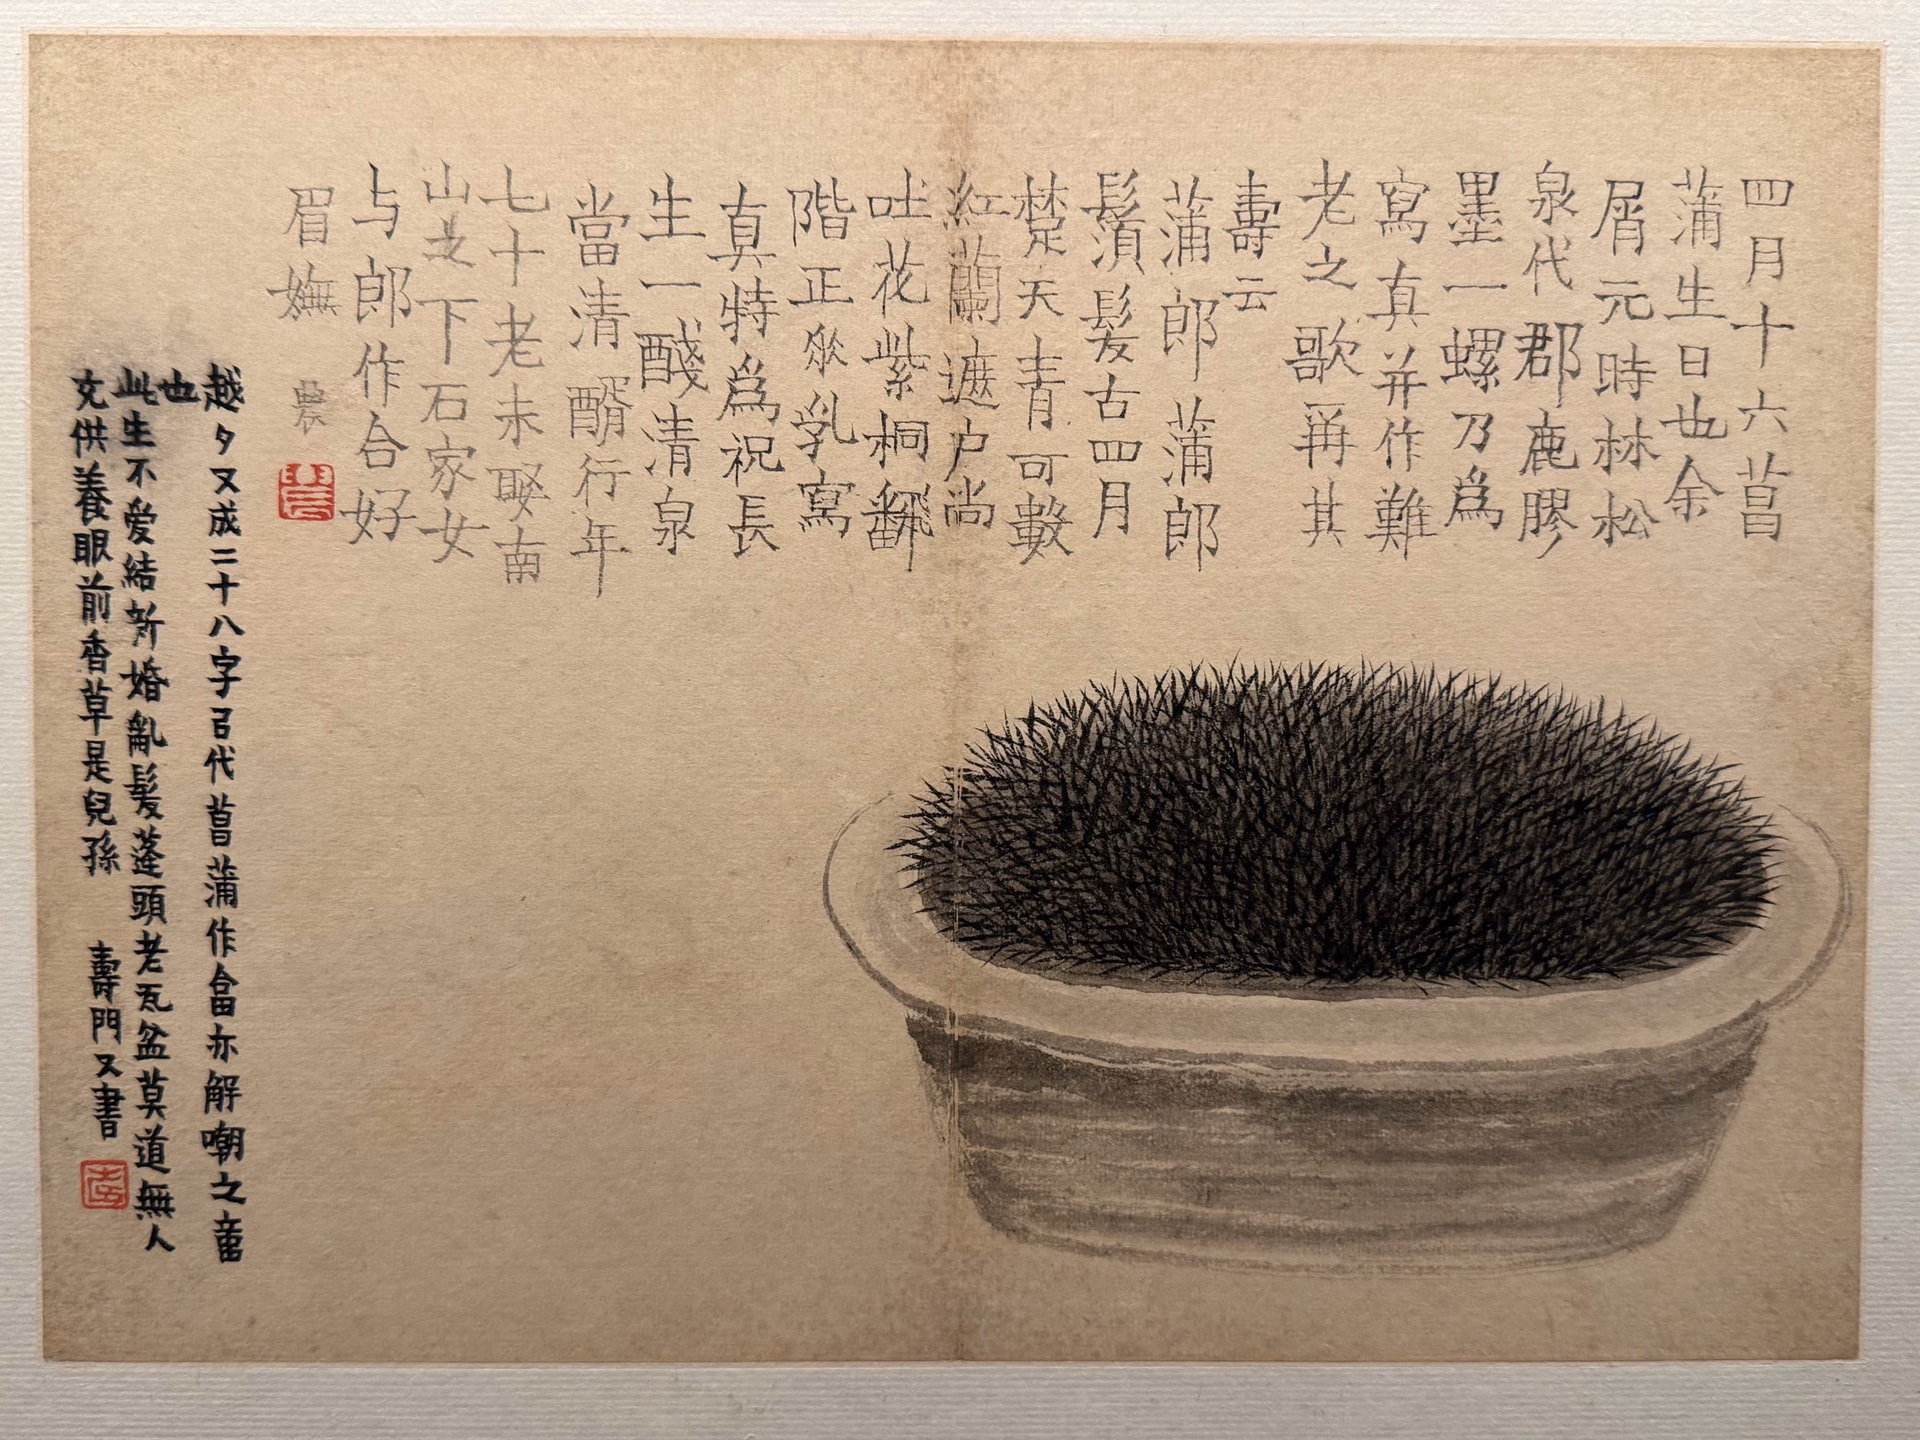 四月十六菖
蒲生日也余
屑元時林松
泉代郡鹿膠
墨一螺乃爲
寫真并作難
老之歌爯其
壽云
蒲郎蒲郎
鬚髮古四月
楚天青可數
紅蘭遮户尚
吐花紫桐翻
階正𠂹乳寫
真特爲祝長
生一醆清泉
當清醑行年
七十老未娶南
山㞢下石家女
与郎作合好
眉嫵 農
越夕又成二十八字㠯代菖蒲作畣亦解嘲之意
也
此生不爱結新婚亂髮蓬頭老瓦盆莫道無人
充供養眼前香草是兒孫 壽門又書